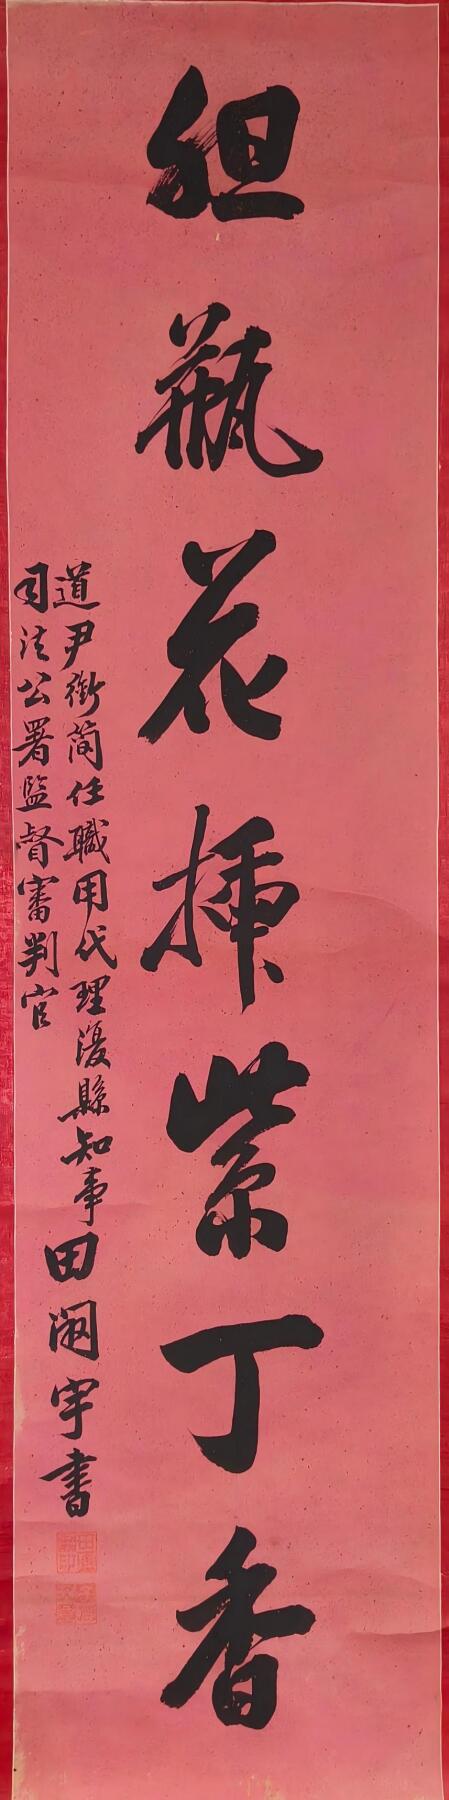 胆瓶花插紫丁香
道尹銜簡任職用代理濅縣知事田潤宇書
司法公署監督審判官